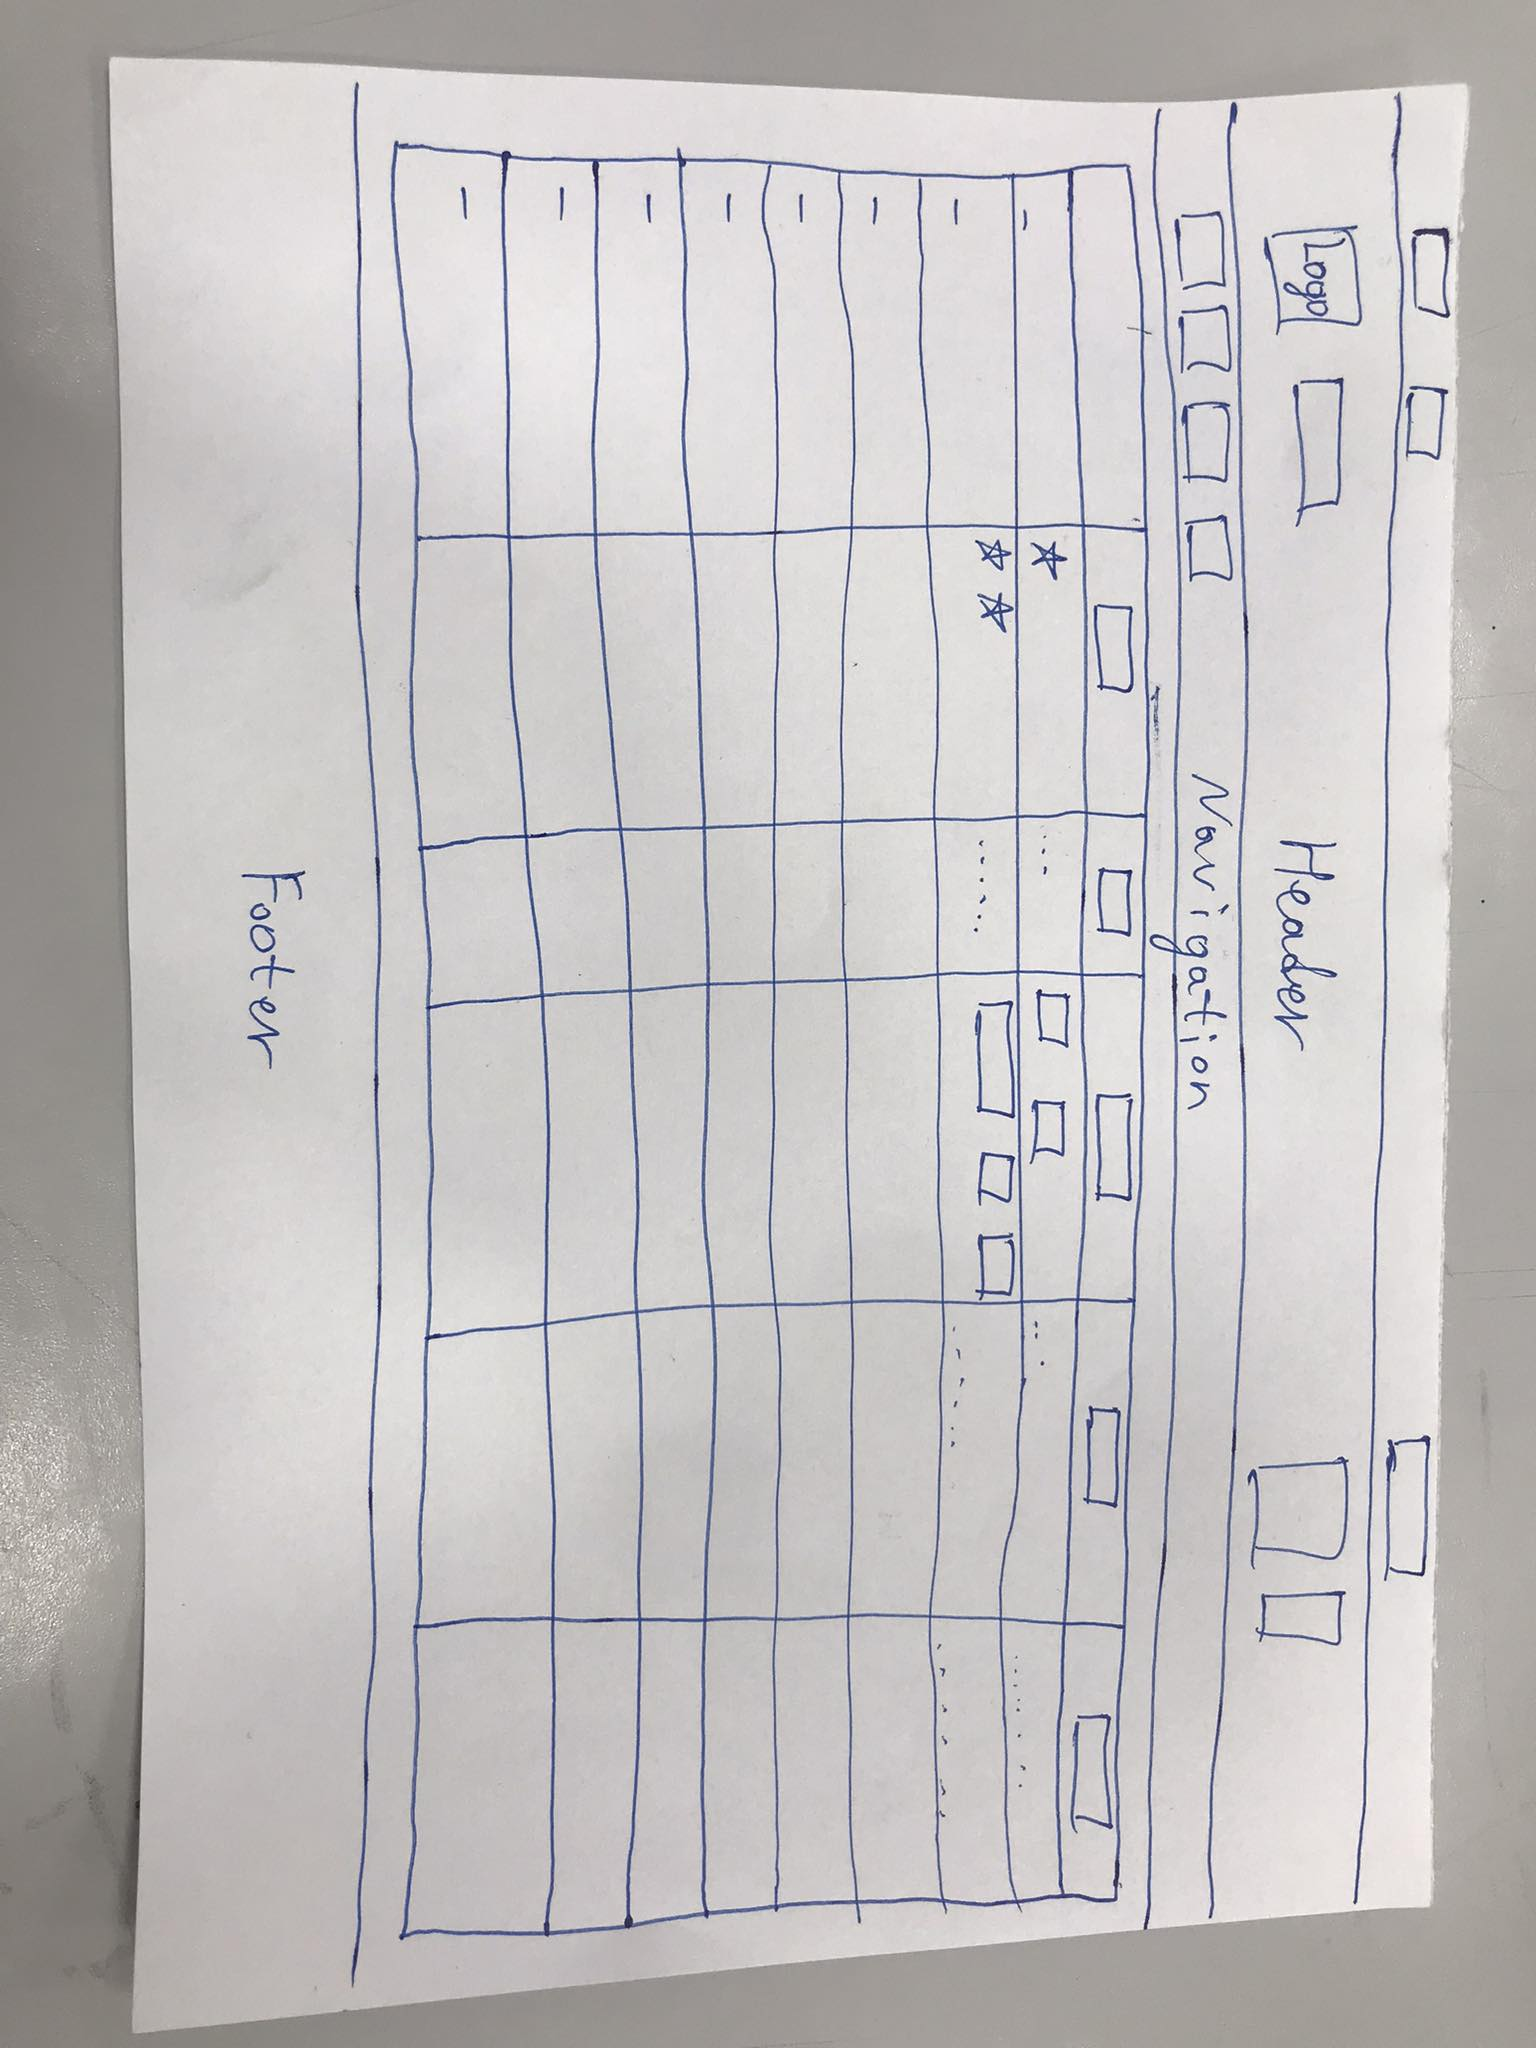 Logo
Header
Navigation
Footer